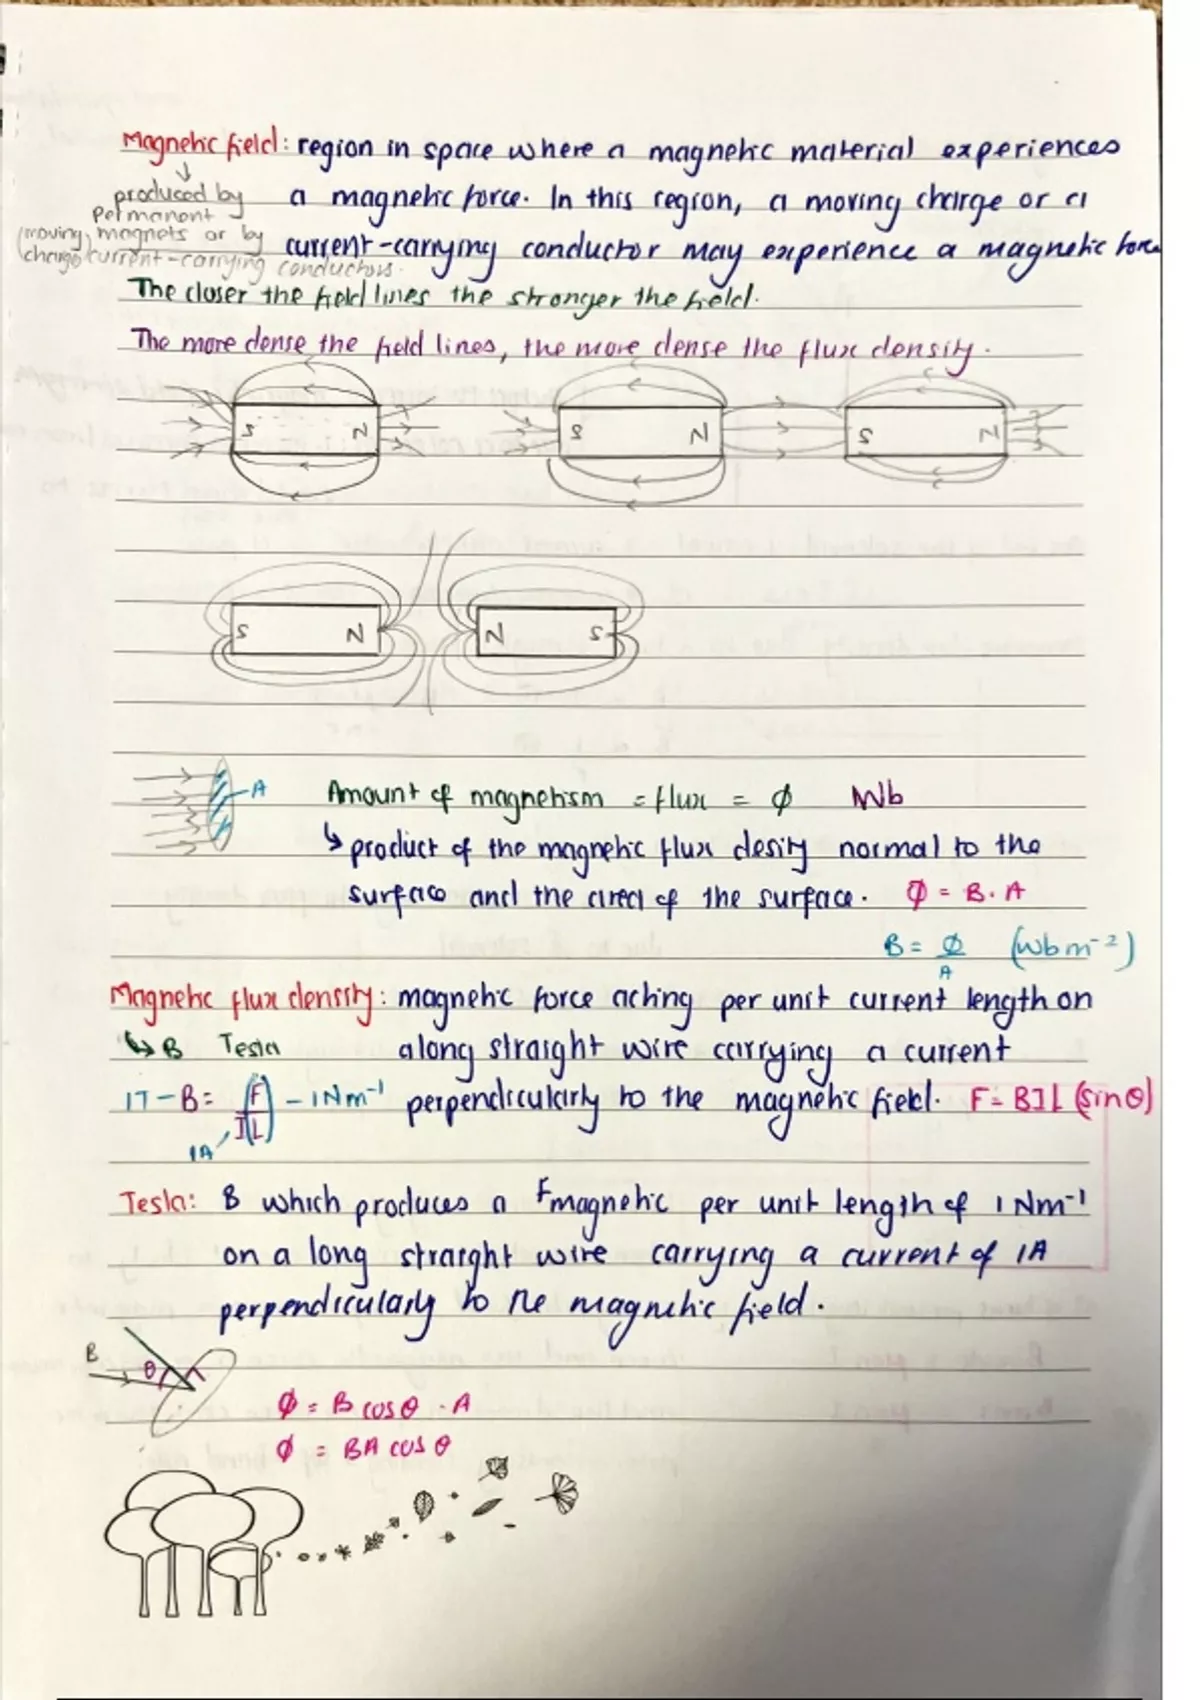 Magnetic field: region in space where a magnetic material experiences
↓
produced by a magnetic force. In this region, a moving charge or a
permanent
(moving magnets or by current-carrying conductor may experience a magnetic force
charge) current-carrying conductors.
The closer the field lines the stronger the field.
The more dense the field lines, the more dense the flux density.
S N S N S N
S N N S
A Amount of magnetism = flux = ϕ Wb
↳ product of the magnetic flux desity normal to the
surface and the area of the surface. ϕ = B. A
B = ϕ/A (Wbm⁻²)
Magnetic flux density: magnetic force acting per unit current length on
↳ B Tesla a long straight wire carrying a current
1T - B = (F/IL) - 1Nm⁻¹ perpendicularly to the magnetic field. F = BIL (sinθ)
1A
Tesla: B which produces a Fmagnetic per unit length of 1 Nm⁻¹
on a long straight wire carrying a current of 1A
perpendicularly to the magnetic field.
B θ
ϕ = B cos θ . A
ϕ = BA cos θ